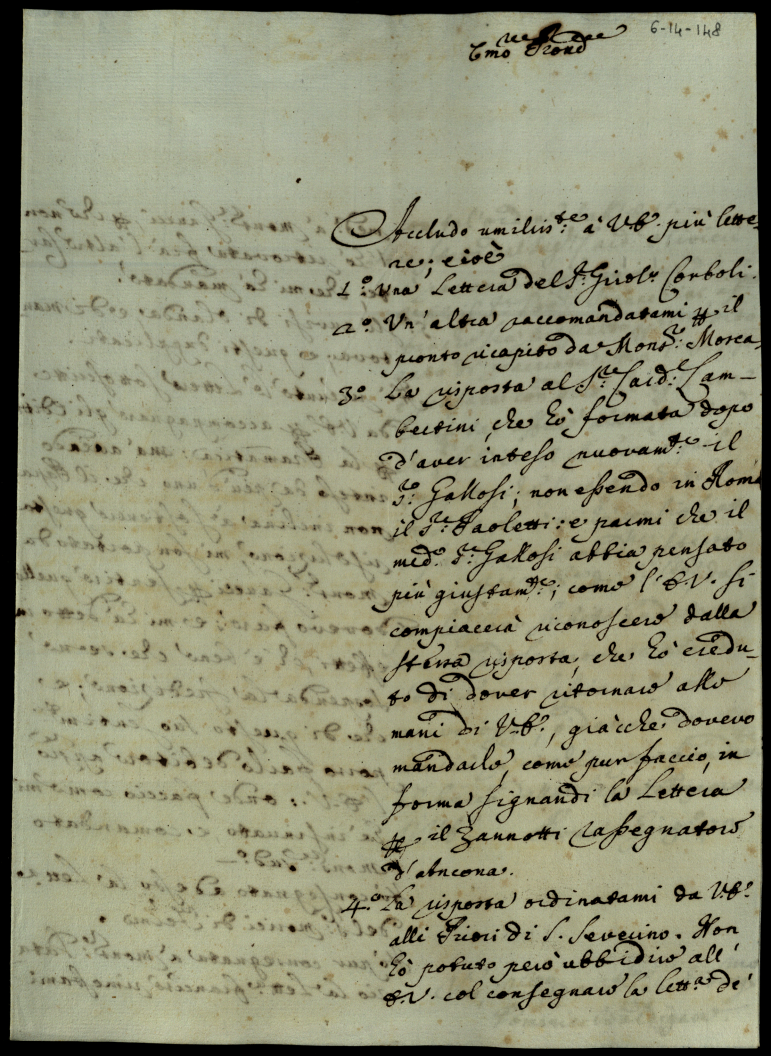 6-14-148
Emo Prone
Accludo umiliss.te à V.E. più lette-
re; e cioè
1.º Una Lettera del S.r Girol.º Corboli.
2.º Un'altra raccomandatami per il
pronto ricapito da Mons.r Mosca,
3º La risposta al S.r Card.l Lam-
bertini, che hò formata dopo
d'aver inteso nuovam.te il
S.r Gallosi; non essendo in Roma
il S.r Paoletti: e parmi che il
med.º S.r Gallosi abbia pensato
più giustam.te; come l'E.V. si
compiacerà riconoscere dalla
stessa risposta, che hò credu-
to di dover ritornare alle
mani di V.E., giacche dovevo
mandarle, come pur faccio, in
forma signandi la Lettera
per il Zannotti rassegnatore
d'Ancona.
4.º La risposta ordinatami da V.E.
alli Priori di S. Severino. Non
hò potuto però ubbidire all'
E.V. col consegnare la lett.ra de'